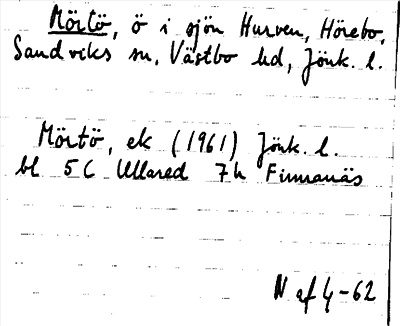 Mörtö, ö i sjön Hurven, Hörebo,
Sandviks sn, Västbo hd, Jönk. l.
Mörtö, ek (1961) Jönk. l.
bl 5C Ullared 7h Finnanäs
N af